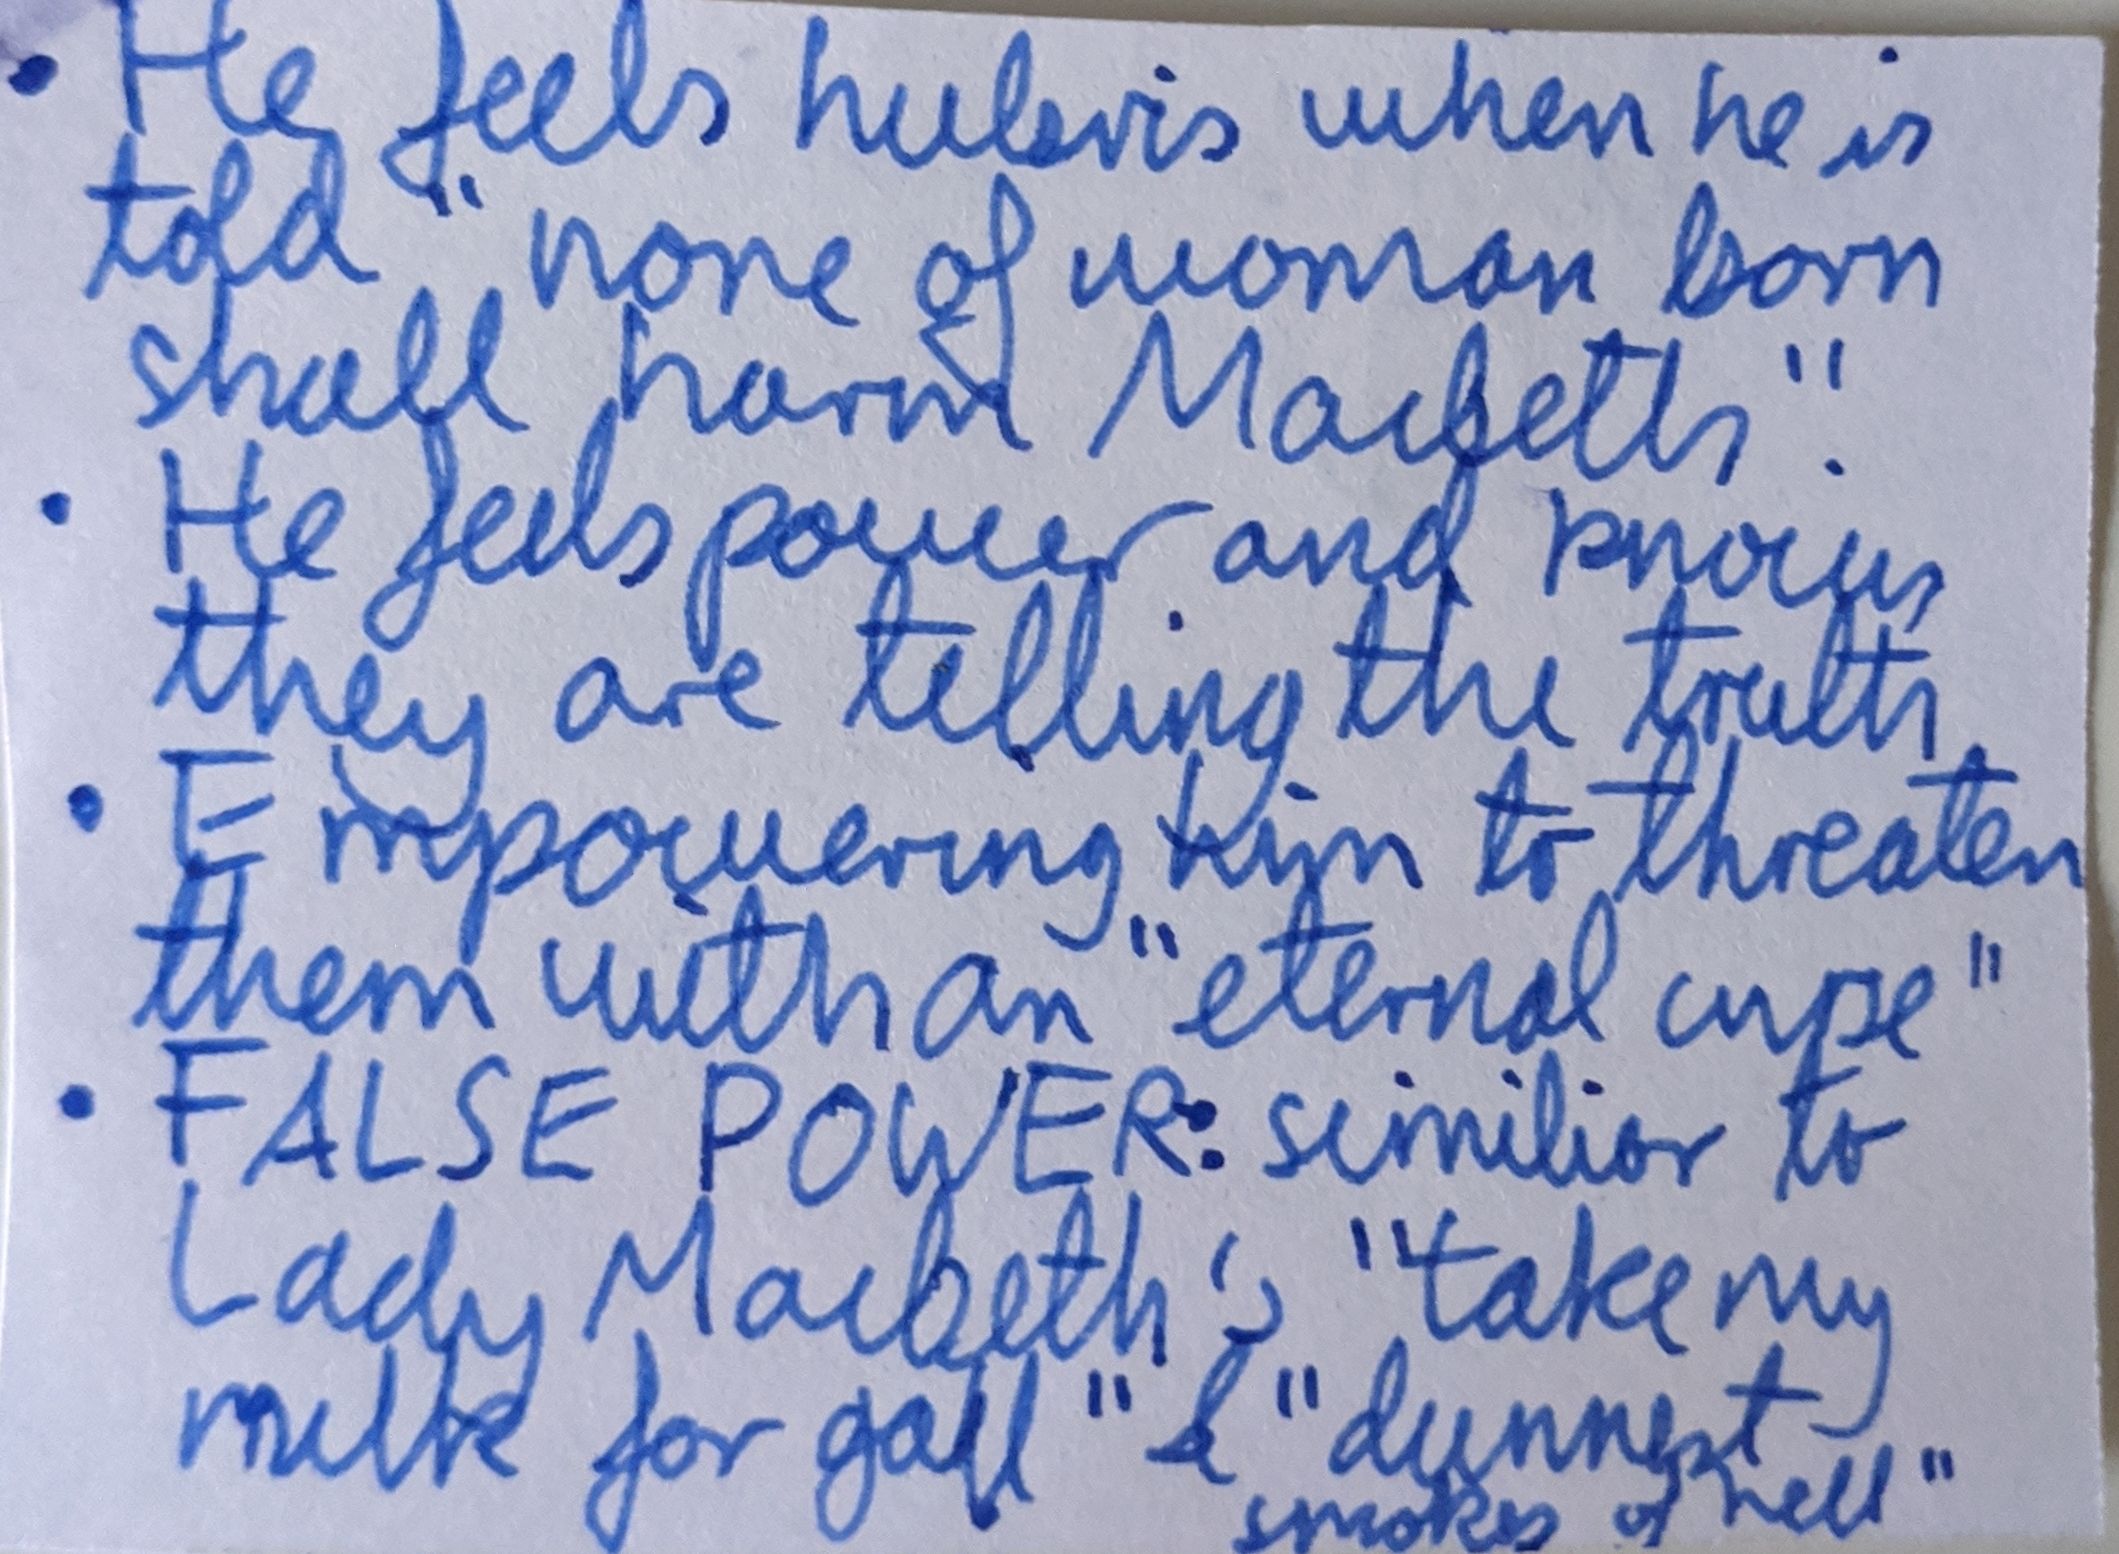 • He feels hubris when he is
told "none of woman born
shall harm Macbeth".
• He feels power and knows
they are telling the truth.
• Empowering him to threaten
them with an "eternal curse"
• FALSE POWER: similiar to
Lady Macbeth's "take my
milk for gall" & "dunnest
smokes of hell"